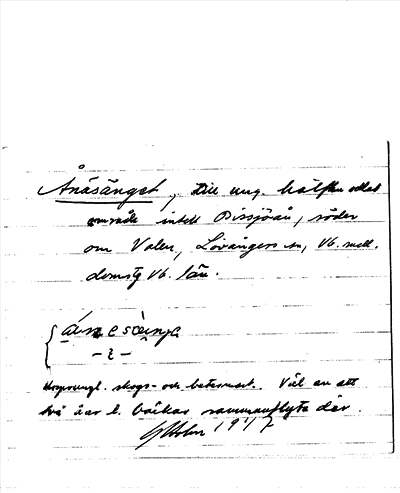 Ånäsänget, till ung. hälften odlat
område intill Bissjöån, söder
om Valen, Lövångers sn, Vb. mell.
doms. Vb. län.
- i -
Ursprungl. skogs- och betesmark. Väl av att
två åar l. bäckar sammanflyta där.
Holm 1917